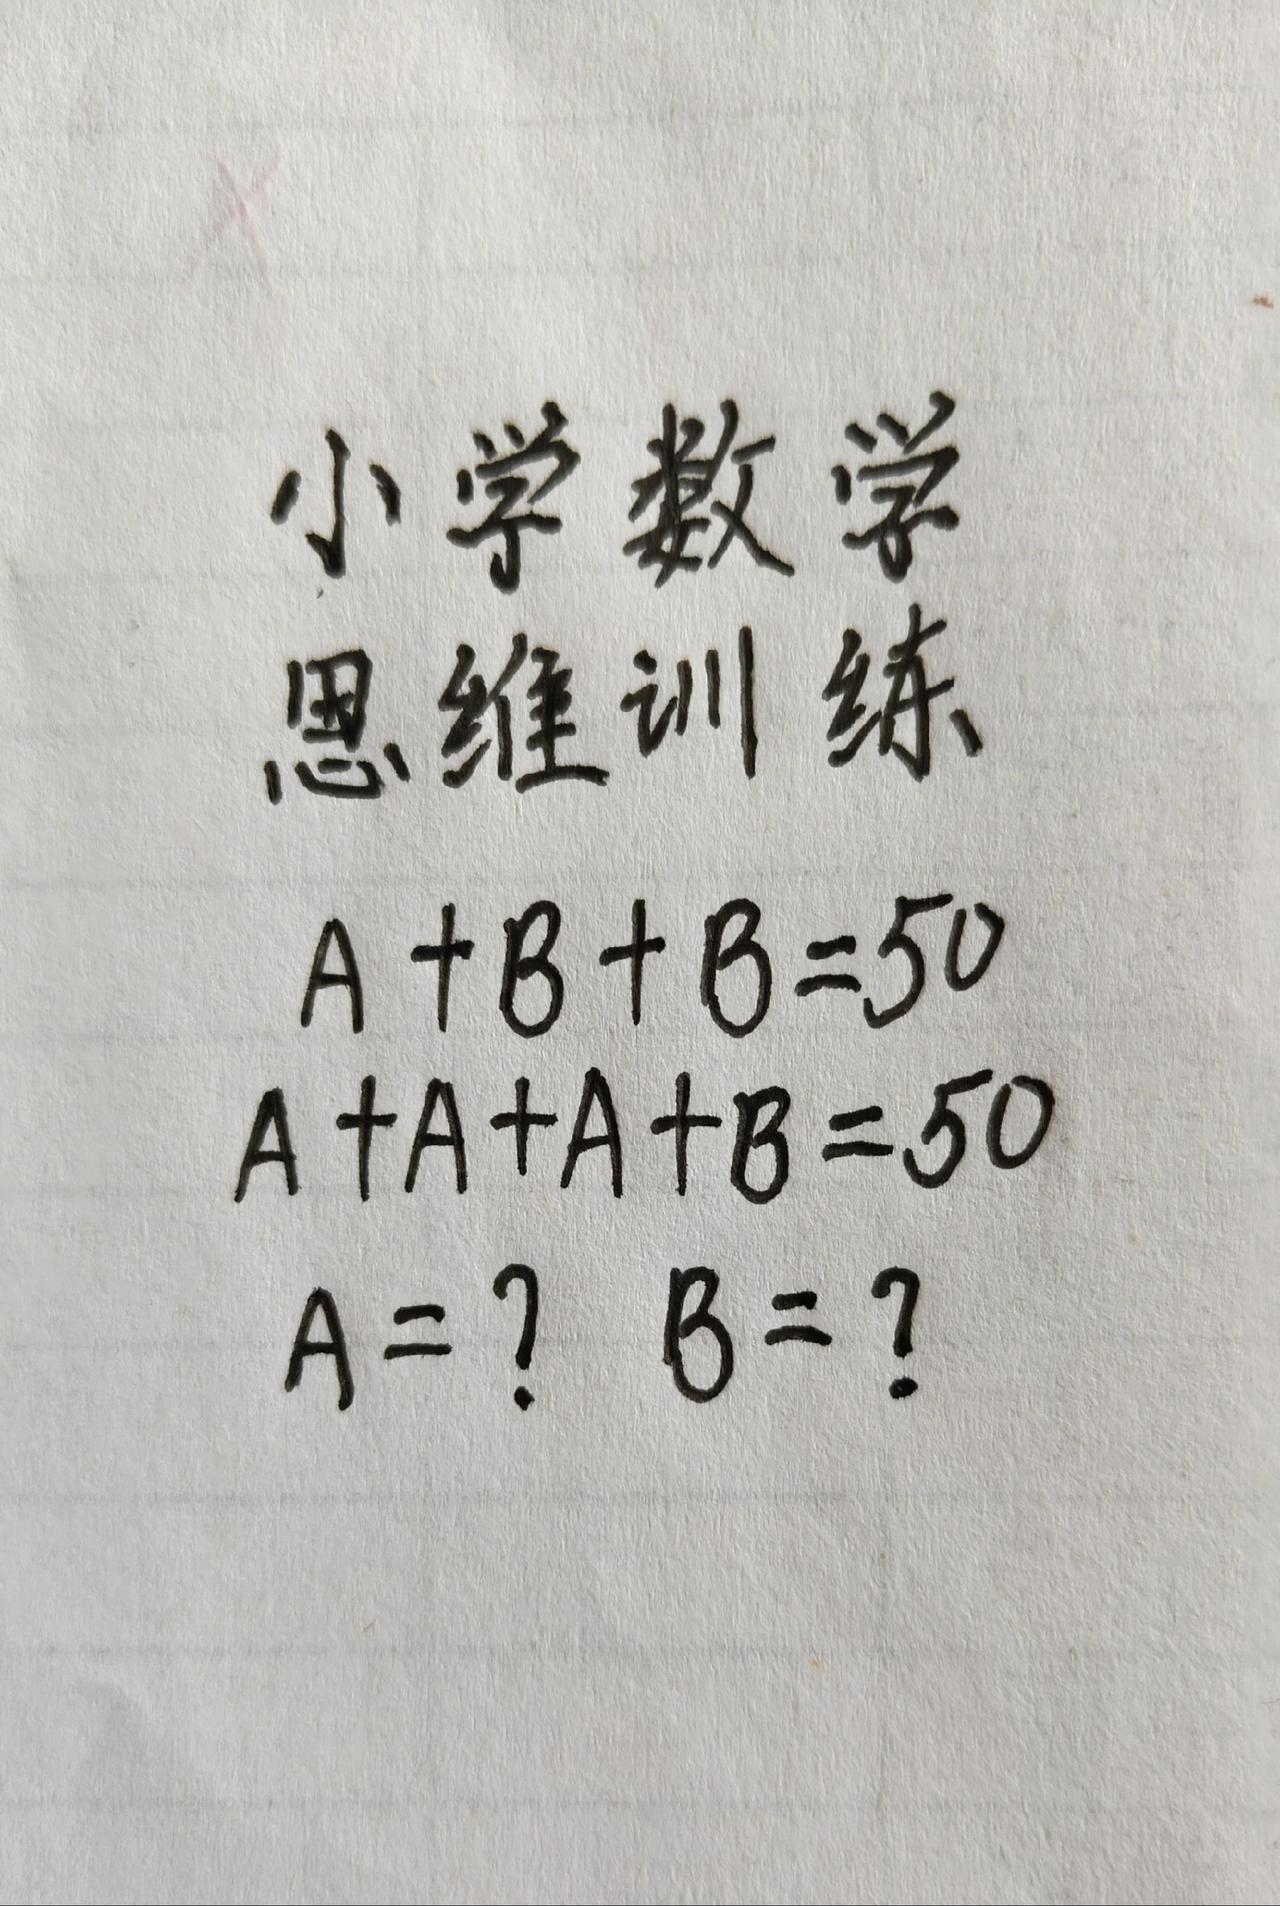 小学数学
思维训练
A+B+B=50
A+A+A+B=50
A=? B=?